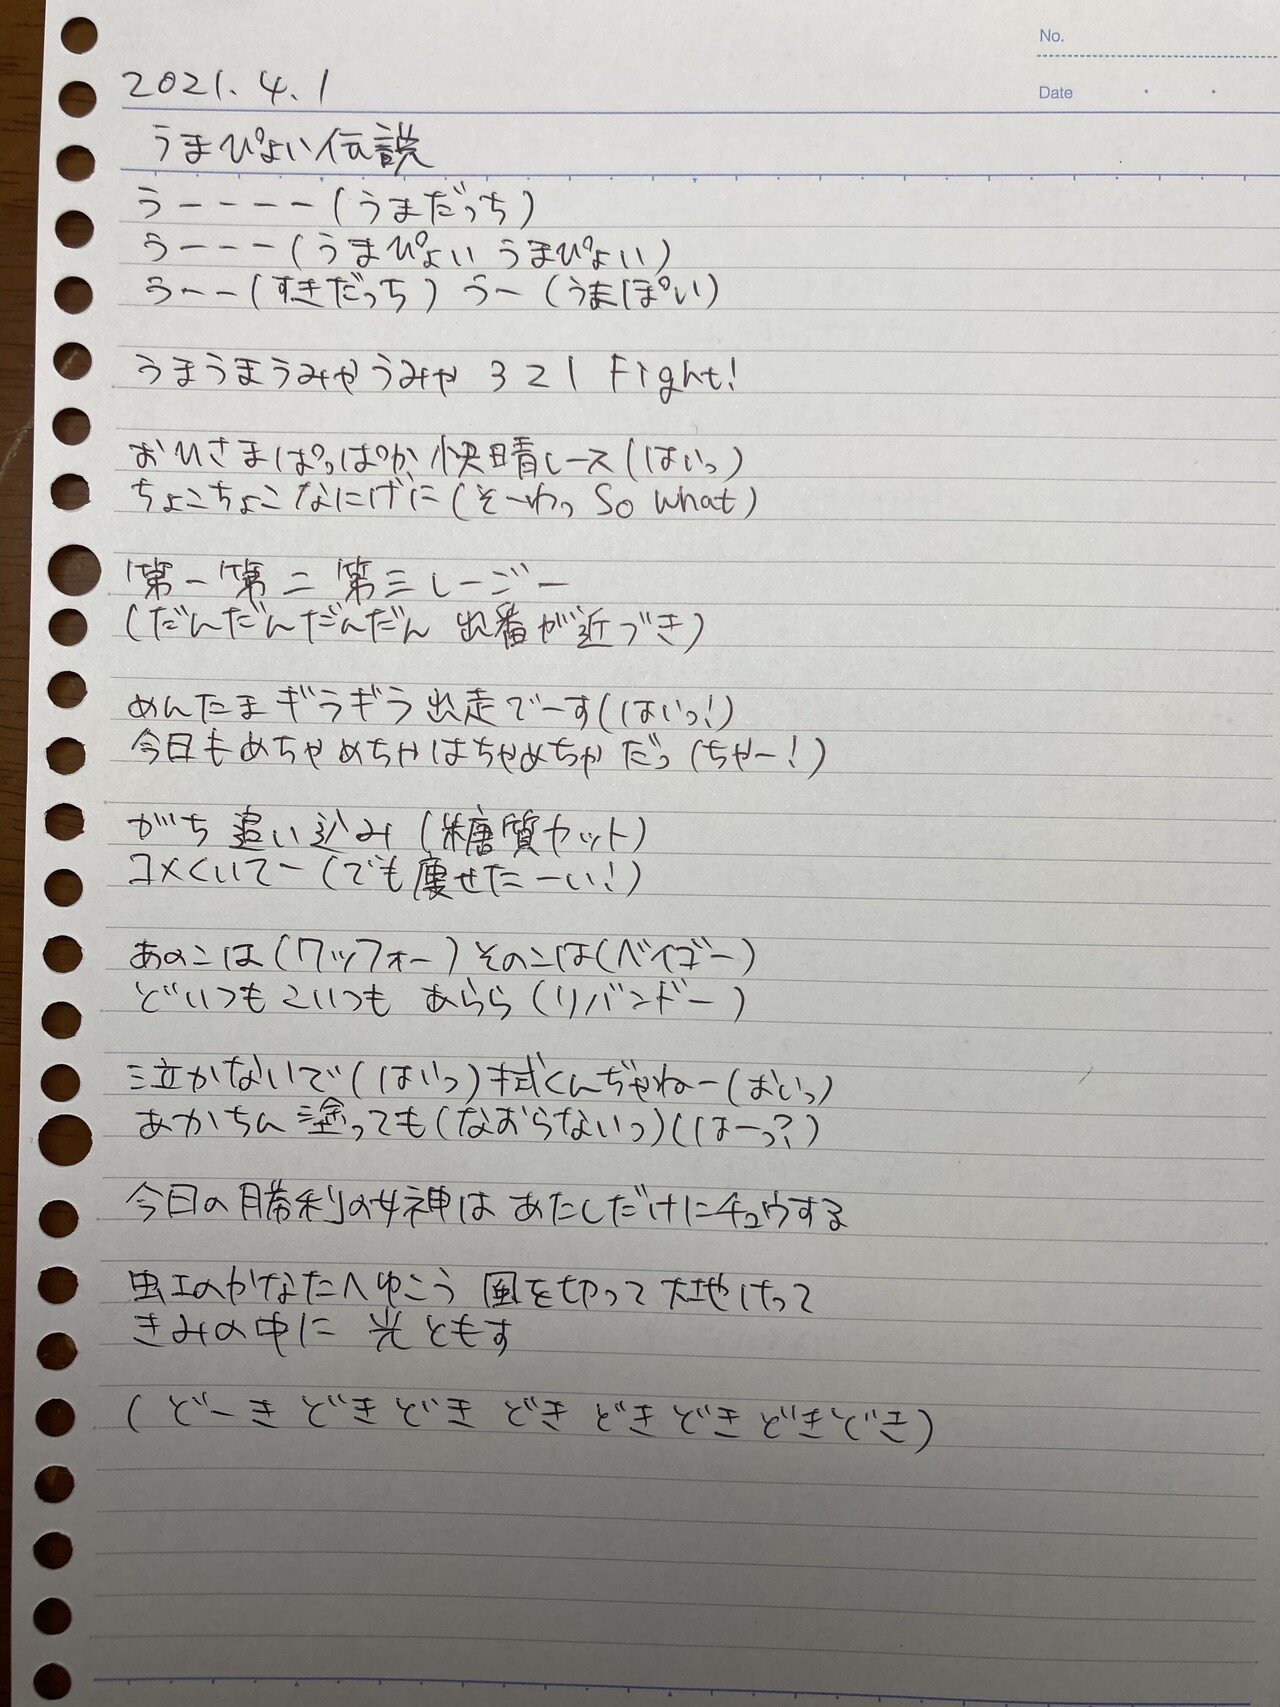 No.
Date
2021.4.1
うまぴょい伝説
うーーーー(うまだっち)
うーーー(うまぴょい うまぴょい)
うーー(すきだっち) うー (うまぽい)
うまうまうみゃうみゃ 3 2 1 Fight!
おひさまぱっぱか 快晴レース(はいっ)
ちょこちょこ なにげに (そーわっ So what)
第一 第二 第三 しーごー
(だんだんだんだん 出番が近づき)
めんたま ギラギラ 出走でーす(はいっ!)
今日もめちゃめちゃはちゃめちゃ だっ (ちゃー!)
がち 追い込み (糖質カット)
コメくいてー (でも痩せたーい!)
あのこは (ワッフォー) そのこは(ベイゴー)
どいつもこいつも あらら (リバンドー)
泣かないで(はいっ) 拭くんぢゃねー(おいっ)
あかちん塗っても(なおらないっ)(はーっ?)
今日の勝利の女神は あたしだけにチュウする
虹のかなたへゆこう 風を切って 大地けって
きみの中に 光ともす
(どーき どき どき どき どき どき どき どき)